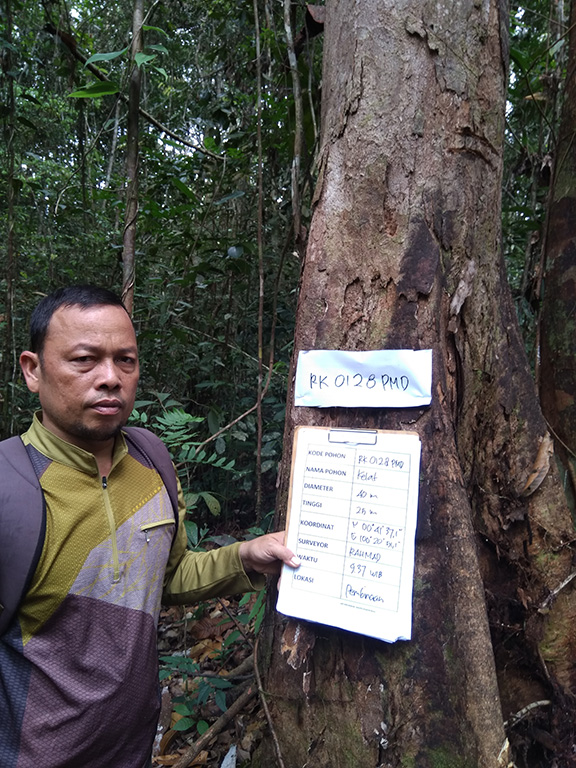 RK 0128 PMD
KODE POHON RK 0128 PMD
NAMA POHON Kelat
DIAMETER 40 m
TINGGI 28 m
KOORDINAT
SURVEYOR RAHMAD
WAKTU 937 WIB
LOKASI